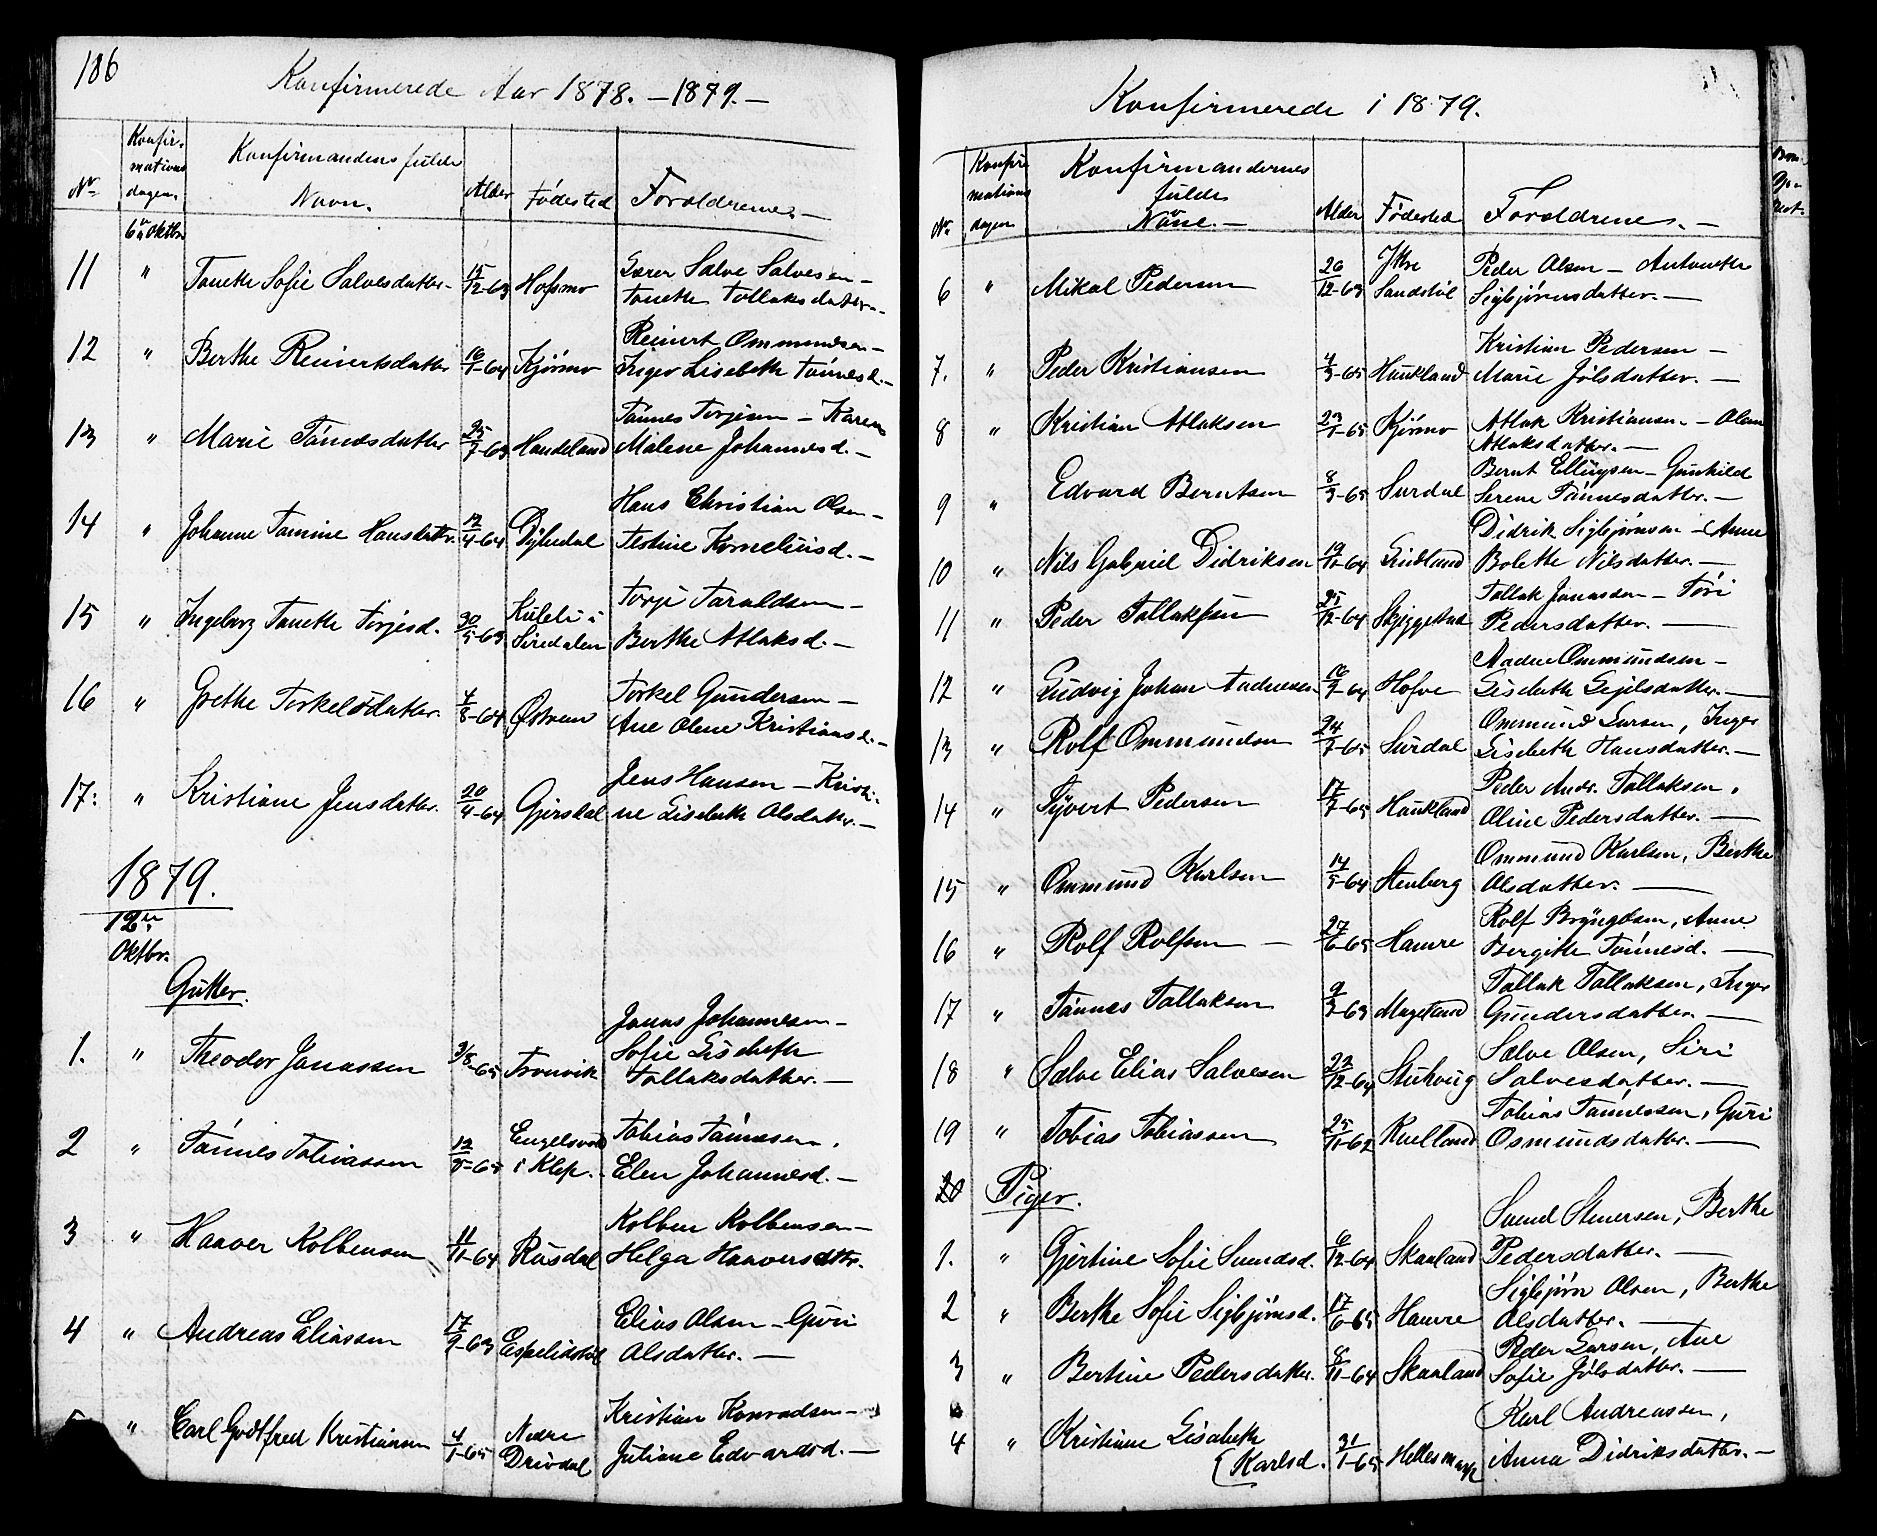 186
Konfirmerede Aar 1878. – 1879. –
Nr Konfirmations dagen. Konfirmandens fulde Navn. Alder Fødested Forældrene. –
6te Oktbr.
11 " Tonette Sofie Salvesdatter. 15/12-63 Hofsmo Salve Salvesen – Tonette Tollaksdatter. –
12 " Berthe Reinertsdatter 16/1-64 Kjørmo Reinert Ommundsen – Inger Lisebeth Tønnesd. –
13 " Marie Tønnesdatter 25/7-63 Haudeland Tønnes Torjesen – Karen Malene Johannesd. –
14 " Johanne Tomine Hansdatter. 12/4-64 Dybedal Hans Christian Olsen – Testine Korneliusd. –
15 " Ingeborg Tonette Torjesd. 30/5-63 i Siredalen Torje Taraldsen – Berthe Atlaksd. –
16 " Grethe Torkelsdatter. 4/8-64 Østrem Torkel Gundersen – Ane Olene Kristiansd. –
17: " Kristiane Jensdatter. 20/4-64 Jens Hansen – Kristine Lisebeth Olsdatter. –
1879.
12te
Oktbr.
Gutter.
1. " Theodor Jonassen 3/8-65 Tronvik Jonas Johannesen – Sofie Lisebeth Tollaksdatter. –
2 " Tønnes Tobiassen 12/5-65 i Klep. Tobias Tønnesen, Elen Johannesd. –
3 " Haaver Kolbensen 11/11-64 Rusdal Kolben Kolbensen – Helga Haaversdttr.
4 " Andreas Eliassen 17/9-63 Espelidstøl Elias Olsen – Guri Olsdatter. –
5 " Carl Godtfred Kristiansen 4/1-65 Nedre Drivdal Kristian Konradsen – Juliane Edvardsd. –
Konfirmerede i 1879.
Nr Konfirmations dagen Konfirmandernes fulde Navne. – Alder Fødested Forældrene. –
6 " Mikal Pedersen 26/12-63 Ytre Sandstøl Peder Olsen – Antonette Sigbjørnsdatter. –
7. " Peder Kristiansen 4/3-65 Haukland Kristian Pedersen – Marie Jølsdatter. –
8 " Kristian Atlaksen 23/1-65 Kjørmo Atlak Kristiansen. – Olene Atlaksdatter. –
9 " Edvard Berntsen 8/3-65 Surdal Bernt Ellingsen – Gunhild Serene Tønnesdatter. –
10 " Nils Gabriel Didriksen 19/12-64 Eidtland Didrik Sigbjørnsen – Anne Bolette Nilsdatter. –
11 " Peder Tollaksen 25/12-64 Skjeggestad Tollak Jonassen – Tøri Pedersdatter. –
12 " Ludvig Johan Aadnesen 16/7-64 Hofve Aadne Ommundsen – Lisebeth Eyelsdatter. –
13 " Rolf Ommundsen 24/7-65 Surdal Ommund Larsen, Inger Lisebeth Hansdatter. –
14 " Syvert Pedersen 17/7-65 Haukland Peder Andr. Tollaksen, Oline Pedersdatter. –
15 " Ommund Karlsen 14/5-64 Stenberg Ommund Karlsen, Berthe Olsdatter. –
16 " Rolf Rolfsen – 27/6-65 Hamre Rolf Bryngelsen, Anne Bergitte Tønnesd. –
17 " Tønnes Tollaksen 9/3-63 Mageland Tollak Tollaksen, Inger Gundersdatter. –
18 " Salve Elias Salvesen 22/12-64 Salve Olsen, Siri Salvesdatter. –
19 " Tobias Tobiassen 25/11-62 Ruelland Tobias Tønnessen, Guri Osmundsdatter. –
20 Piger.
1. " Gjertine Sofie Svendsd. 6/12-64 Skaaland Svend Stenersen, Berthe Pedersdatter. –
2 " Berthe Sofie Sigbjørnsd. 17/6-65 Hamre Sigbjørn Olsen, Berthe Olsdatter. –
3 " Bertine Pedersdatter. 8/11-64 Skaaland Peder Larsen, Ane Sofie Jølsdatter. –
4 " Kristiane Lisabeth Karlsd. 31/1-65 Karl Andreassen, Anna Didriksdatter. –